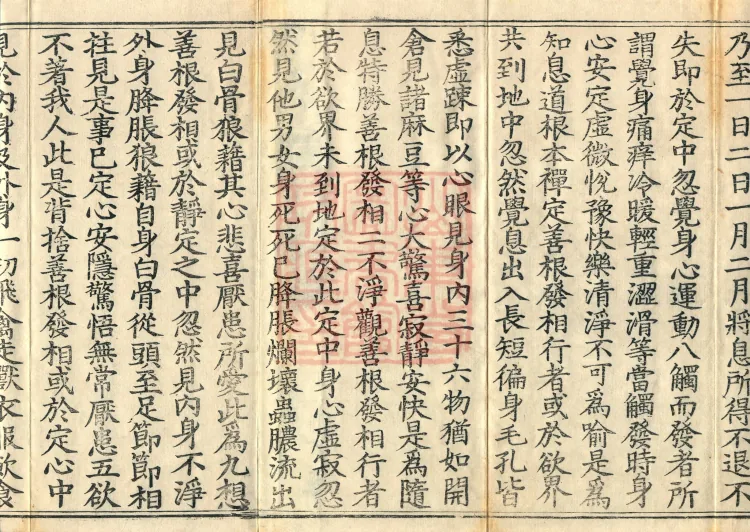 乃至一日二日一月二月將息所得不退不
失即於定中忽覺身心運動八觸而發者所
謂覺身痛痒冷暖輕重澀滑等當觸發時身
心安定虛微悅豫快樂清淨不可為喻是為
知息道根本禪定善根發相行者或於欲界
共到地中忽然覺息出入長短徧身毛孔皆
悉虛踈即以心眼見身內三十六物猶如開
倉見諸麻豆等心大驚喜寂靜安快是為隨
息特勝善根發相二不淨觀善根發相行者
若於欲界未到地定於此定中身心虛寂忽
然見他男女身死死已降脹爛壞蟲膿流出
見白骨狼藉其心悲喜厭患所愛此為九想
善根發相或於靜定之中忽然見內身不淨
外身降脹狼藉自身白骨從頭至足節節相
拄見是事已定心安隱驚悟無常厭患五欲
不著我人此是背捨善根發相或於定心中
見於內身及外身一切飛禽走獸衣服飲食